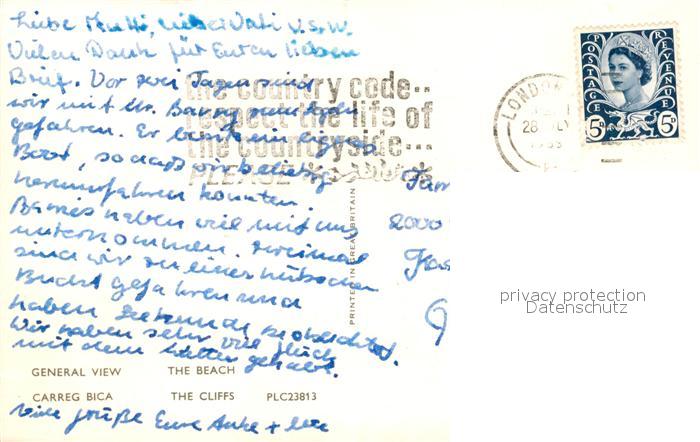 Liebe Mutti, lieber Vati u.s.w.
Vielen Dank für Euren lieben
Brief. Vor zwei Tagen sind
wir mit Mr. Barry
gefahren. Er besitzt ein eigenes
Boot, sodass wir beliebig
herumfahren konnten.
Barries haben viel mit uns
unternommen. Zweimal
sind wir zu einer hübschen
Bucht gefahren und
haben Seehunde beobachtet.
Wir haben sehr viel Glück
mit dem Wetter gehabt.
Viele Grüße Eure Anke +
the country code..
respect the life of
the countryside...
PLEASE
LONDON
28 JLY
POSTAGE REVENUE
5D 5D
Fam
2000
PRINTED IN GREAT BRITAIN
privacy protection
Datenschutz
GENERAL VIEW THE BEACH
CARREG BICA THE CLIFFS PLC23813